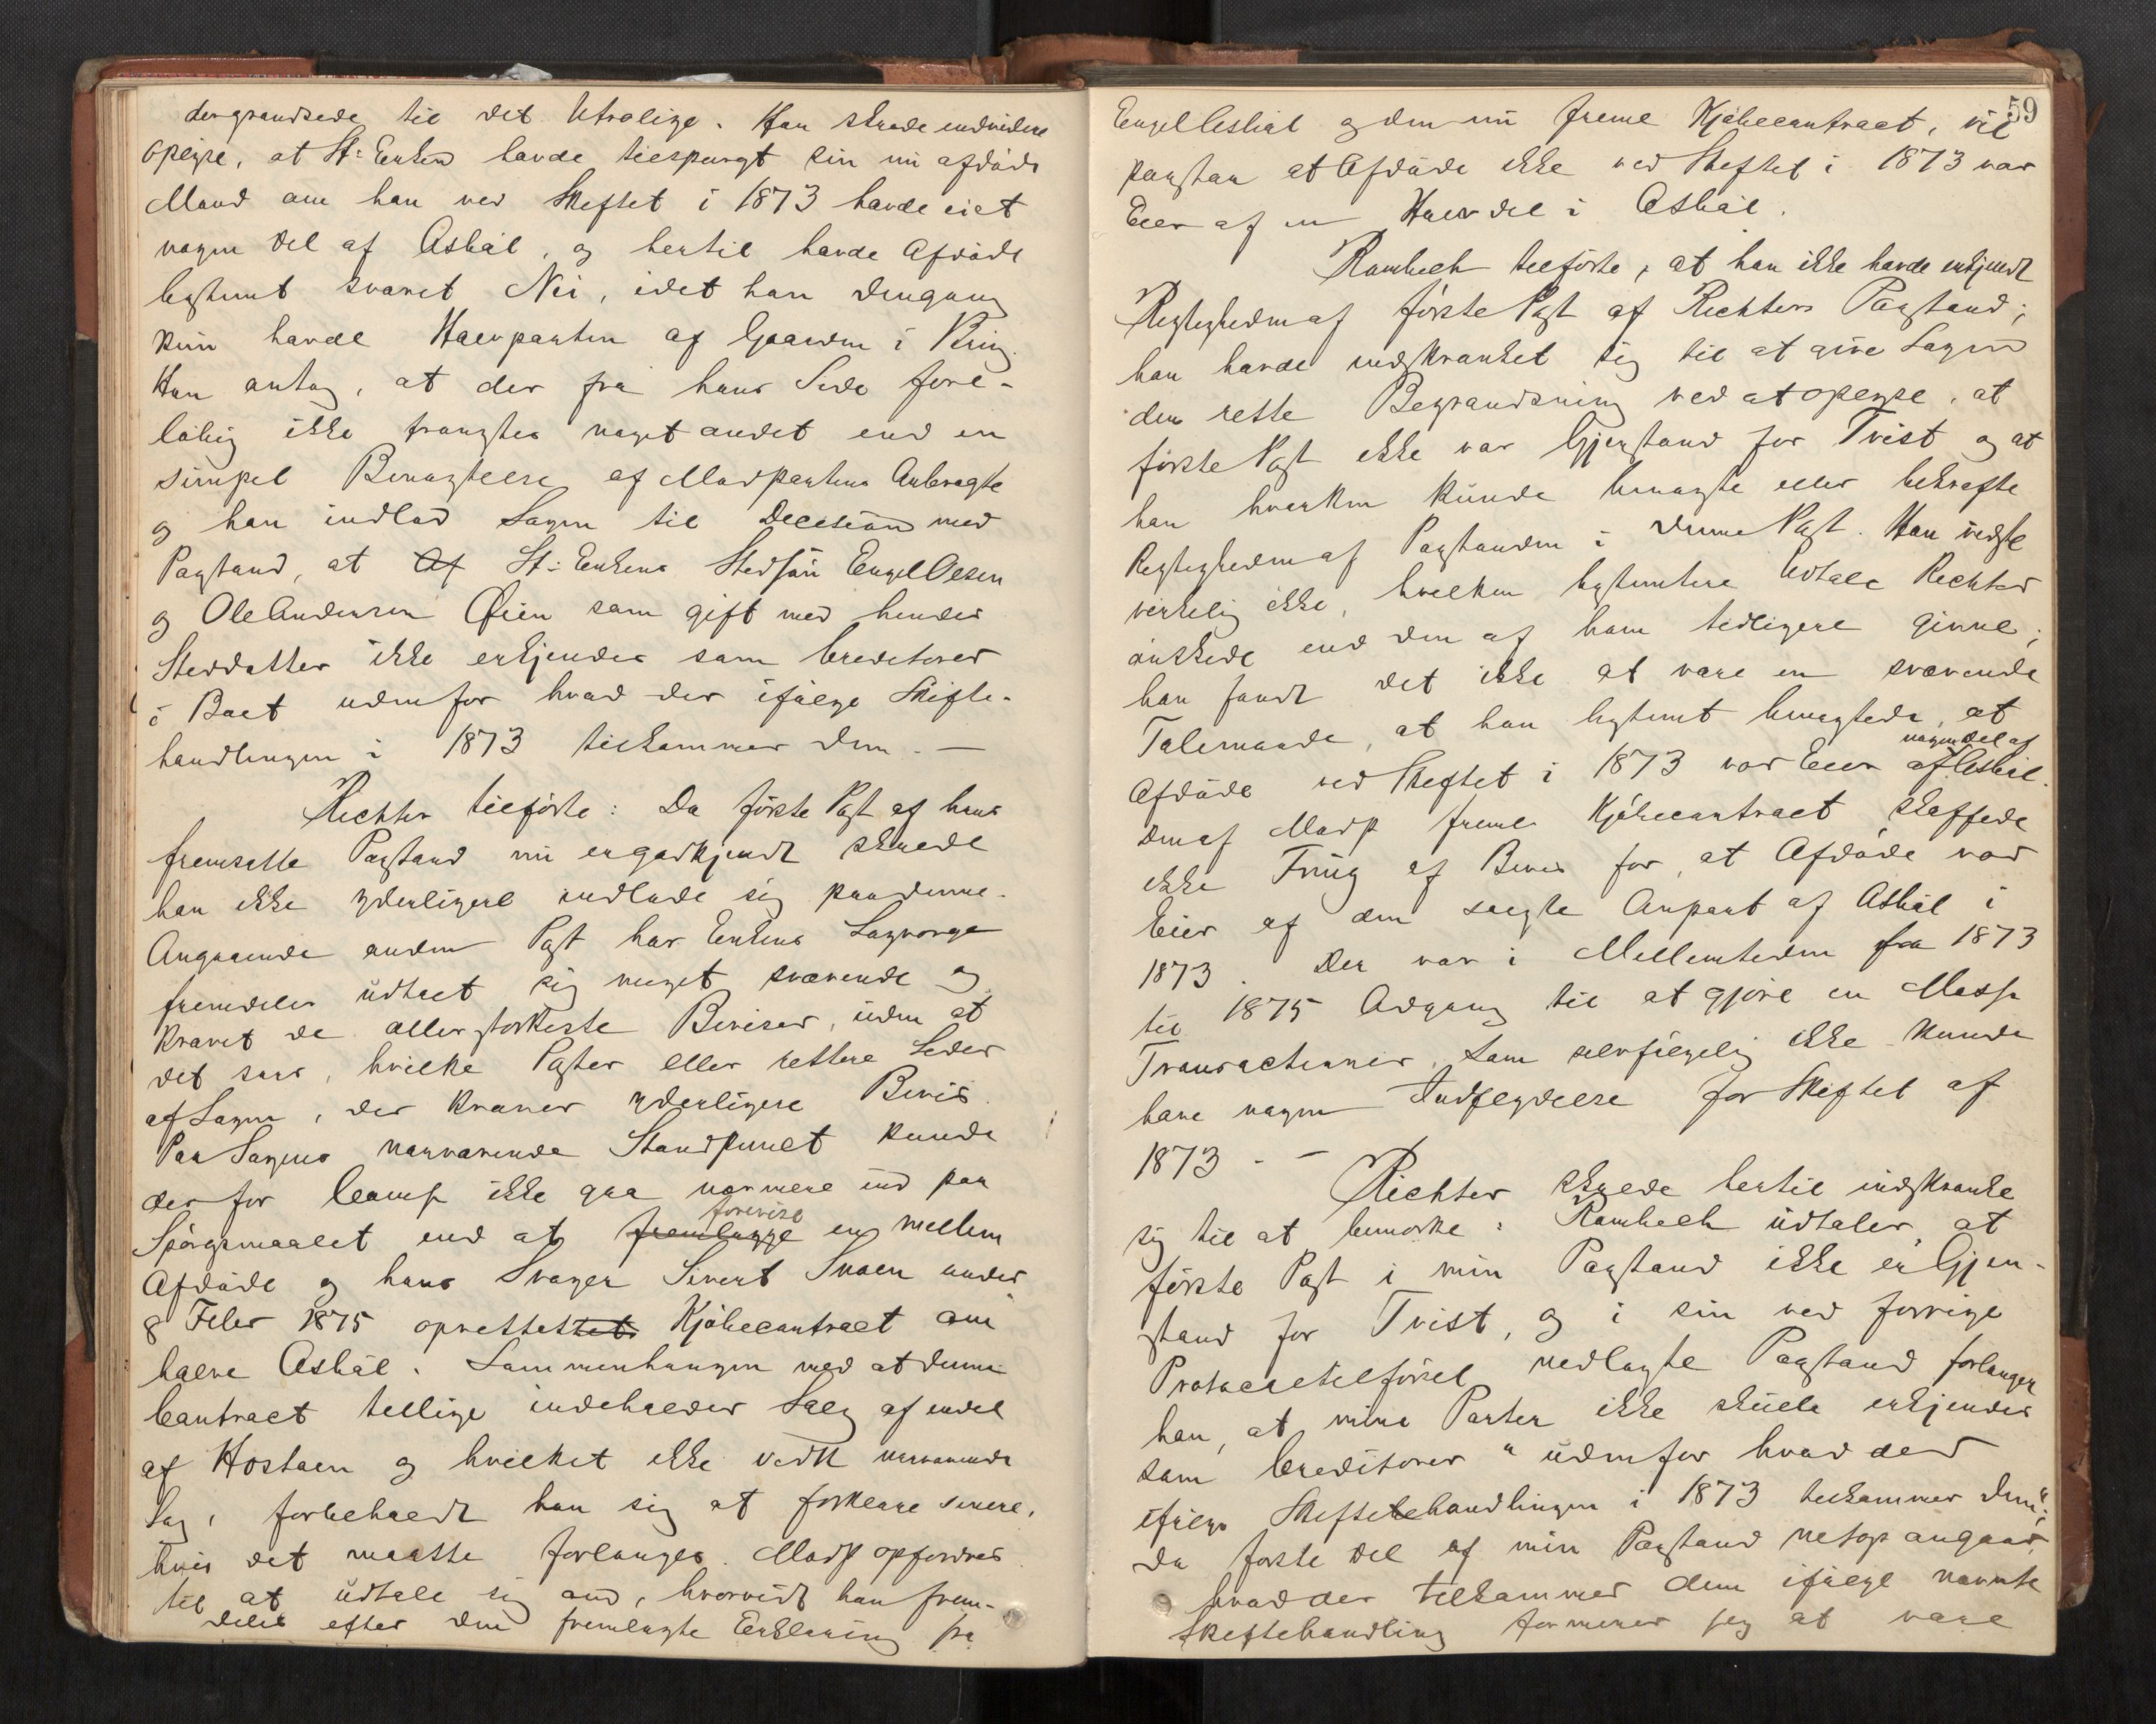 dergrændsede til det Utrolige. Han skrede endvidere
oplyse, at St: Enken havde tilspurgt sin nu afdøde
Mand om han ved Skiftet i 1873 havde eiet
nogen Del af Asbøl, og hertil havde Afdøde
bestemt svaret Nei, idet han dengang
kun havde Halvparten af Gaarden i
Han antog, at der fra hans Side fore-
løbig ikke trængtes noget andet end en
simpel Benægtelse af Modpartens Anbragte
og han indlod Sagen til Decision med
Paastand, at Af St: Enkens Stedsøn Engel Olsen
og Ole Andersen Øien som gift med hendes
Steddatter ikke erkjendes som Creditorer
i Boet udenfor hvad der ifølge Skifte-
handlingen i 1873 tilkommer dem. —
Richter tilførte: Da første Post af hans
fremsatte Paastand nu er godkjendt skulde
han ikke yderligere indlade sig paa denne.
Angaaende anden Post har Enkens Lagværge
fremdeles udtalt sig meget svævende og
krævet de allerstærkeste Beviser, uden at
det sees, hvilke Poster eller rettere Leder
af Sagen, der kræver yderligere Bevis.
Paa Sagens nærværende Standpunct kunde
derfor Comp ikke gaa nærmere ind paa
Spørgsmaalet end at fremlægge forevise en mellem
Afdøde og hans Svoger Sivert Svaen under
8 Febr 1875 oprettet Kjøbecontract om
halve Asbøl. Sammenhængen med at denne
Contract tillige indeholder Salg af endel
af Hostaen og hvilket ikke vedk nærværende
Sag, forbeholdt han sig at forklare senere,
hvis det maatte forlanges. Modp opfordres
til at udtale sig om, hvorvidt han frem-
deles efter den fremlagte Erklæring fra
59
Engel Asbøl og den nu freme Kjøbecontract, vil
paastaa at Afdøde ikke ved Skiftet i 1873 var
Eier af en Halvdel i Asbøl.
Rambech tilførte, at han ikke havde erkjendt
Rigtigheden af første Post af Richters Paastand;
han havde indskrænket sig til at give Sagen
den rette Begrændsning ved at oplyse, at
første Post ikke var Gjenstand for Tvist og at
han hverken kunde benægte eller bekræfte
Rigtigheden af Paastanden i denne Post. Han vidste
virkelig ikke, hvilken bestemtere Udtale Richter
ønskede end den af ham tidligere givne;
han fandt det ikke at være en svævende
Talemaade, at han bestemt benægtede, at
Afdøde ved Skiftet i 1873 var Eier af nogen Del af Asbøl.
Den af Modp fremle Kjøbecontract skaffede
ikke Fnug af Bevis for, at Afdøde var
Eier af den solgte Anpart af Asbøl i
1873. Der var i Mellemtiden fra 1873
til 1875 Adgang til at gjøre en Masse
Transactioner, som selvfølgelig ikke kunde
have nogen Indflydelse for Skiftet af
1873 – –
Richter skrede hertil indskrænke
sig til at bemærke: Rambech udtaler, at
første Post i min Paastand ikke er Gjen-
stand for Tvist, og i sin ved forrige
Protocoltilførsel nedlagte Paastand forlanger
han, at mine Parter ikke skulle erkjendes
som Creditorer "udenfor hvad der
ifølge Skiftebehandlingen i 1873 tilkommer dem";
da første Del af min Paastand netop angaar
hvad der tilkommer dem ifølge nævnte
Skiftebehandling formener jeg at være